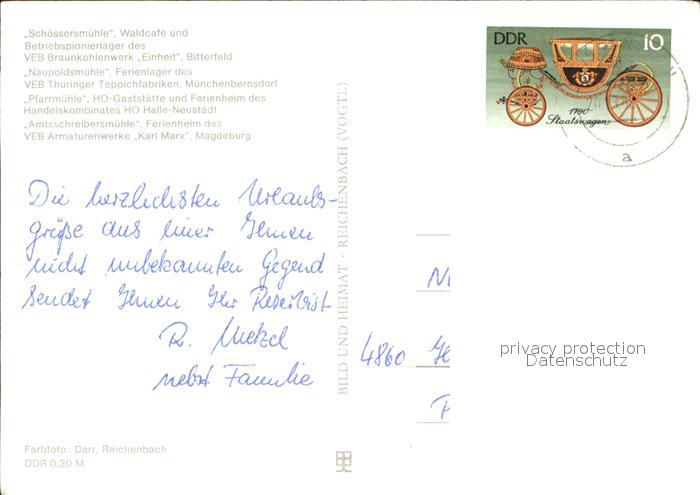 „Schössersmühle", Waldcafé und
Betriebspionierlager des
VEB Braunkohlenwerk „Einheit", Bitterfeld
„Naupoldsmühle", Ferienlager des
VEB Thüringer Teppichfabriken, Münchenbernsdorf
„Pfarrmühle", HO-Gaststätte und Ferienheim des
Handelskombinates HO Halle-Neustadt
„Amtsschreibersmühle", Ferienheim des
VEB Armaturenwerke „Karl Marx", Magdeburg
Die herzlichsten Urlaubs-
grüße aus einer Ihnen
nicht unbekannten Gegend
sendet Ihnen Ihr Reservist
R. Metzel
nebst Familie
Farbfoto: Darr, Reichenbach
DDR 0,20 M
BILD UND HEIMAT · REICHENBACH (VOGTL)
DDR 10
1790
Staatswagen
a
4860
privacy protection
Datenschutz